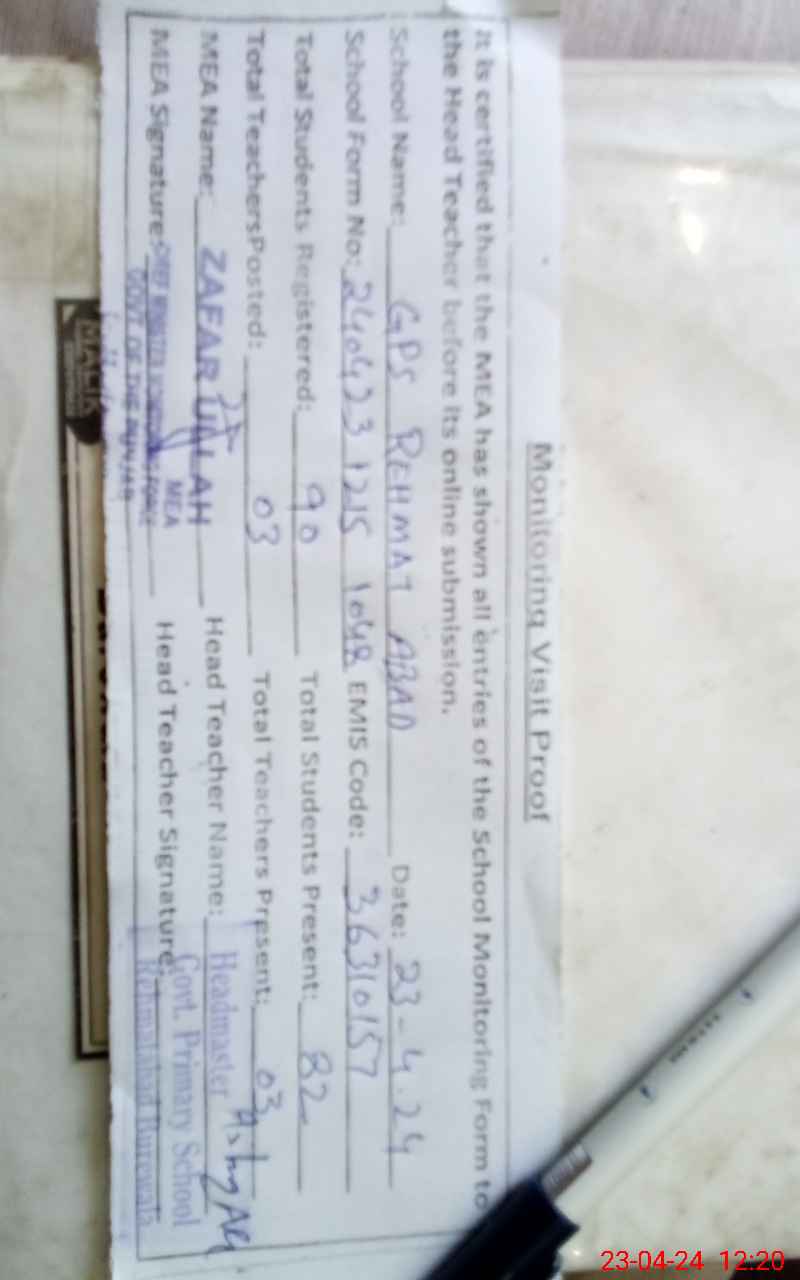 Monitoring Visit Proof
It is certified that the MEA has shown all entries of the School Monitoring Form to
the Head Teacher before its online submission.
School Name: GPS REHMAT ABAD Date: 23-4.24
School Form No: 240423 1215 1048 EMIS Code: 36310157
Total Students Registered: 90 Total Students Present: 82
Total TeachersPosted: 03 Total Teachers Present: 03
MEA Name: ZAFAR ULLAH Head Teacher Name: Headmaster
MEA Signature: MEA Head Teacher Signature: Govt. Primary School
GOVT OF THE PUNJAB Rehmatabad Burewala
MALIK
23-04-24 12:20